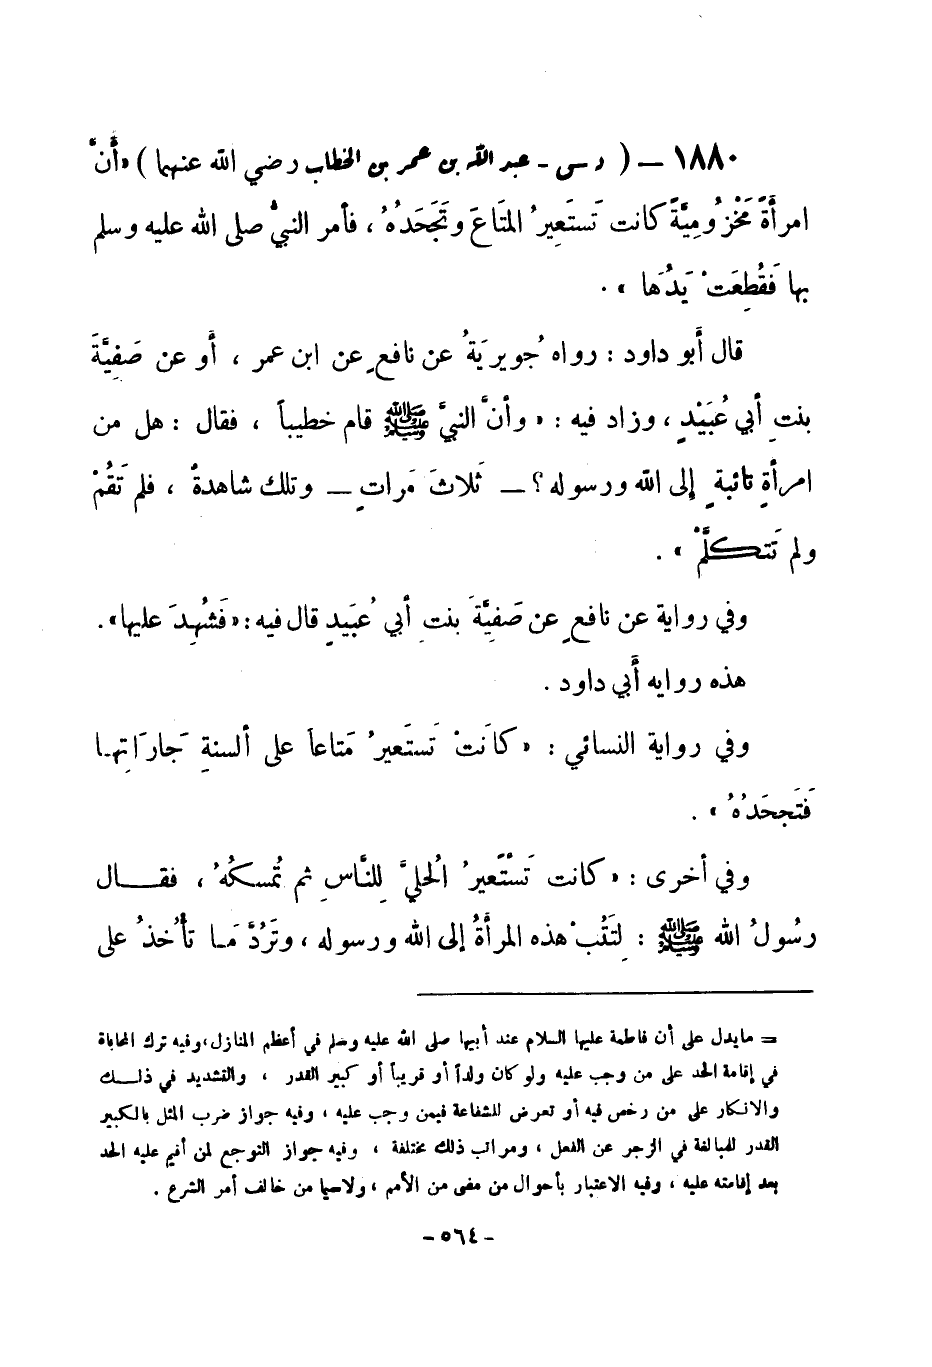 ١٨٨٠ – ( د س - عبد الله بن عمر بن الخطاب رضي الله عنهما ) «أَنَّ
امرأَةً مَخْزُومِيَّةً كانت تَستَعِيرُ المتَاعَ وتَجحَدُهُ ، فأمر النبيُّ صلى الله عليه وسلم
بها فَقُطِعَتْ يَدُهَا » .
قال أَبو داود : رواه جُويريَةُ عن نافعٍ عن ابن عمر ، أَو عن صَفِيَّةَ
بنتِ أَبي عُبَيْدٍ ، وزاد فيه : « وأَنَّ النبيَّ ﷺ قام خطيباً ، فقال : هل من
امرأَةٍ تائبةٍ إلى الله ورسوله ؟ – ثَلاثَ مَراتٍ – وتلك شاهدةٌ ، فلم تَقُمْ
ولم تَتَكلَّمْ » .
وفي رواية عن نافعٍ عن صَفِيَّةَ بنتِ أبي عُبَيدٍ قال فيه : « فَشُهِدَ عليها» .
هذه روايه أَبي داود .
وفي رواية النسائي : « كانَتْ تَستَعيرُ مَتاعاً على ألسنةِ جَارَاتِها
فَتَجحَدُهُ » .
وفي أخرى : « كانت تَسْتَعيرُ الحُليَّ لِلنَّاسِ ثم تُمسكُهُ ، فقال
رسُولُ الله ﷺ : لِتَتُبْ هذه المرأَةُ إلى الله ورسوله ، وتَرُدَّ مَا تأخُذُ على
= مايدل على أن فاطمة عليها السلام عند أبيها صلى الله عليه وسلم في أعظم المنازل ،وفيه ترك المحاباة
في إقامة الحد على من وجب عليه ولو كان ولداً أو قريباً أو كبير القدر ، والتشديد في ذلك
والانكار على من رخص فيه أو تعرض للشفاعة فيمن وجب عليه ، وفيه جواز ضرب المثل بالكبير
القدر للمبالغة في الزجر عن الفعل ، ومراتب ذلك مختلفة ، وفيه جواز التوجع لمن أقيم عليه الحد
بعد إقامته عليه ، وفيه الاعتبار بأحوال من مضى من الأمم ، ولاسيما من خالف أمر الشرع .
- ٥٦٤ -